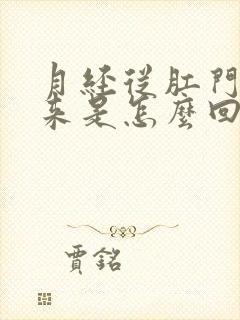 月經從肛門
來是怎麼回
賈銘